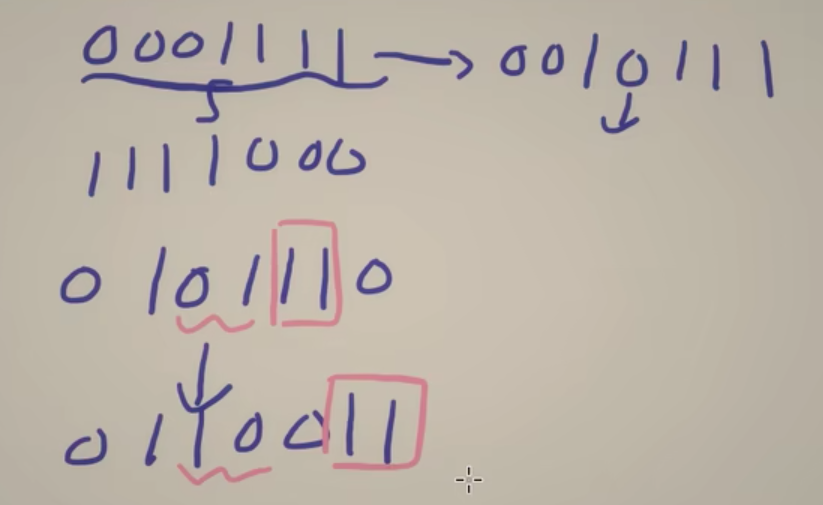 0001111 → 0010111
1111000
0101110
0110011